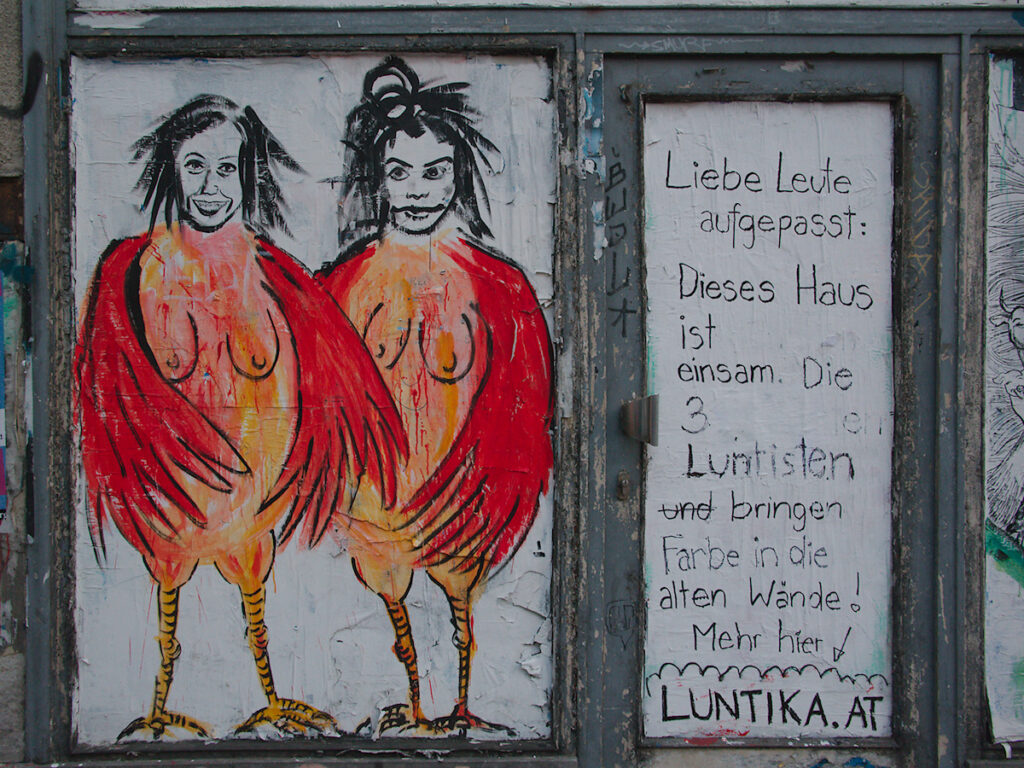 SMURF
Liebe Leute
aufgepasst:
Dieses Haus
ist
einsam. Die
3 en
Luntisten
und bringen
Farbe in die
alten Wände!
Mehr hier
LUNTIKA.AT